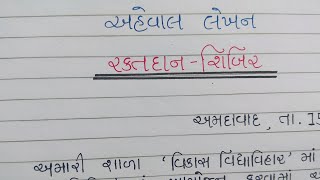 અહેવાલ લેખન
રક્તદાન-શિબિર
અમદાવાદ, તા. 15
અમારી શાળા 'વિકાસ વિદ્યાવિહાર' માં